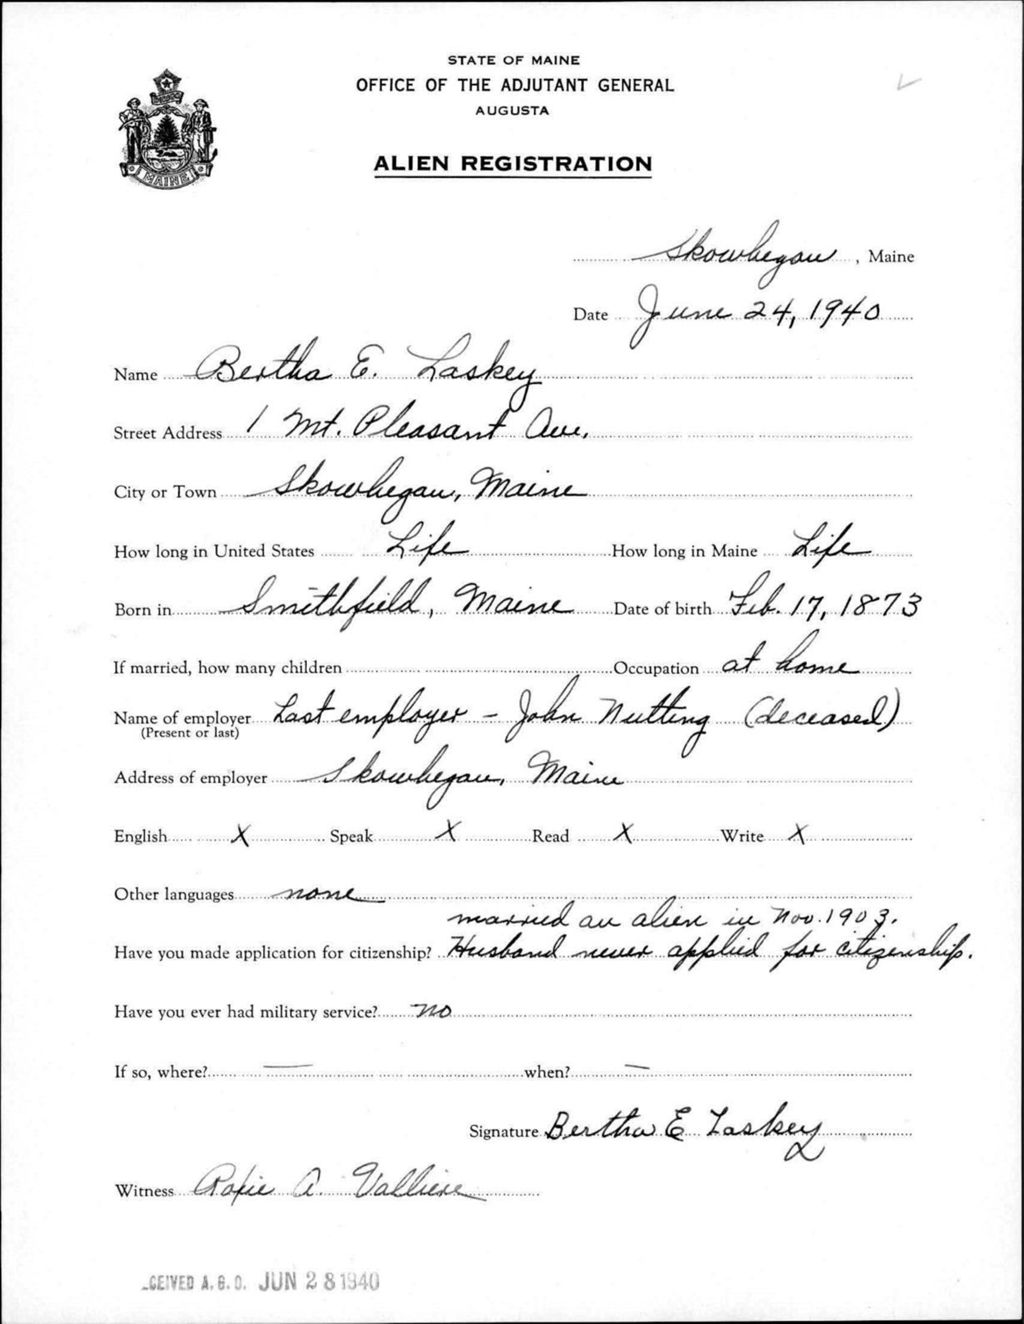 STATE OF MAINE
OFFICE OF THE ADJUTANT GENERAL
AUGUSTA
ALIEN REGISTRATION
MAINE
Skowhegan, Maine
Date June 24, 1940
Name Bertha E. Laskey
Street Address 1 Mt. Pleasant Ave.
City or Town Skowhegan, Maine
How long in United States Life How long in Maine Life
Born in Smithfield, Maine Date of birth Feb. 17, 1873
If married, how many children Occupation at home
Name of employer Last employer – John Nutting (deceased)
(Present or last)
Address of employer Skowhegan, Maine
English X Speak X Read X Write X
Other languages none
married an alien in Nov. 1903.
Have you made application for citizenship? Husband never applied for citizenship.
Have you ever had military service? no
If so, where? — when? —
Signature Bertha E Laskey
Witness Roxie A. Valliere
CEIVED A.G.O. JUN 28 1940